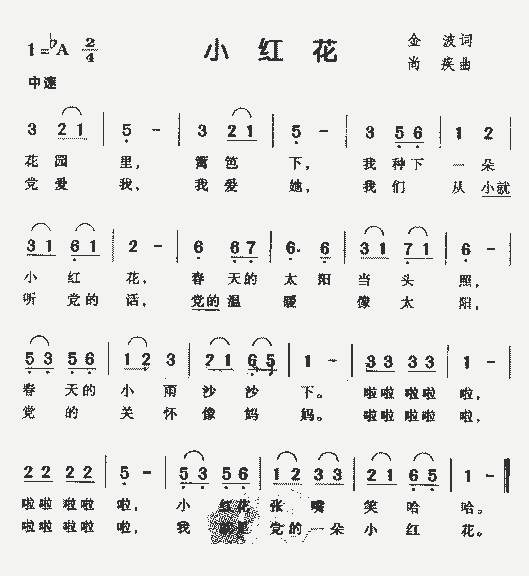 1=♭A 2/4 小红花 金波词
中速 尚疾曲
3 2 1 | 5 - | 3 2 1 | 5 - | 3 5 6 | 1 2 |
花园里，篱笆下，我种下一朵
党爱我，我爱她，我们从小就
3 1 6 1 | 2 - | 6 6 7 | 6. 6 | 3 1 7 1 | 6 - |
小红花，春天的太阳当头照，
听党的话，党的温暖像太阳，
5 3 5 6 | 1 2 3 | 2 1 6 5 | 1 - | 3 3 3 3 | 1 - |
春天的小雨沙沙下。啦啦啦啦啦，
党的关怀像妈妈。啦啦啦啦啦，
2 2 2 2 | 5 - | 5 3 5 6 | 1 2 3 3 | 2 1 6 5 | 1 - ‖
啦啦啦啦啦，小红花张嘴笑哈哈。
啦啦啦啦啦，我 党的一朵小红花。